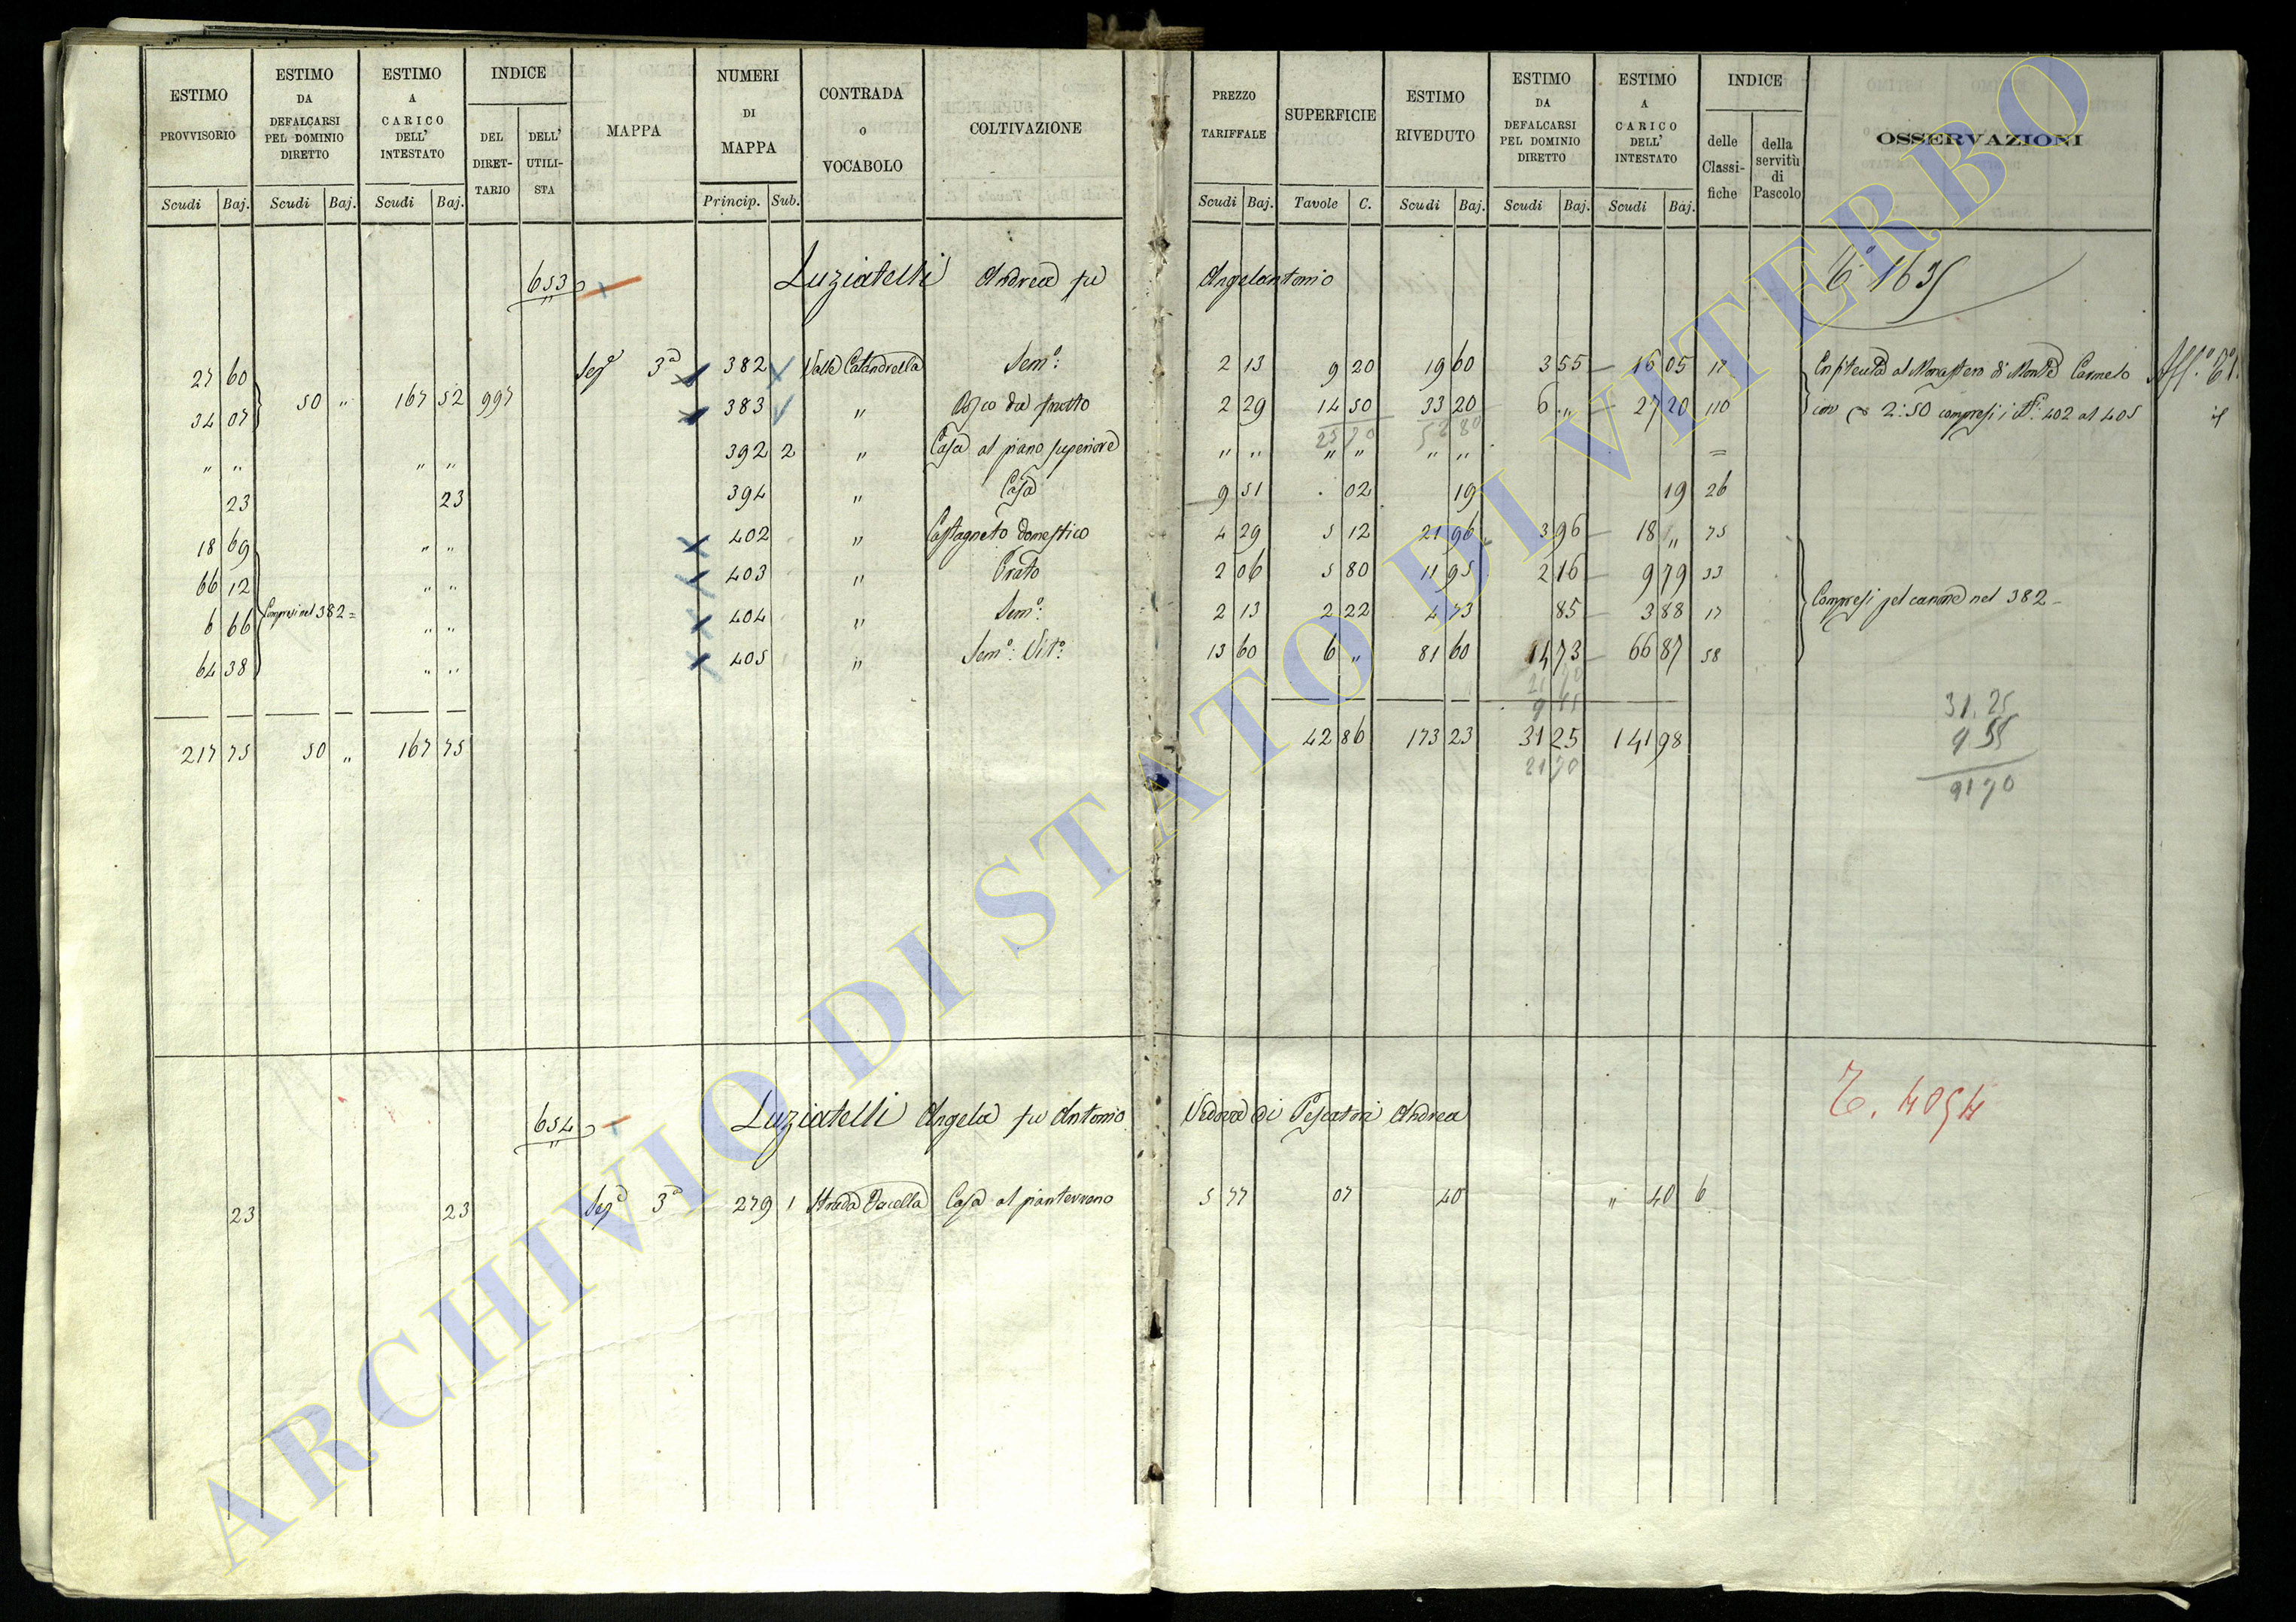 ESTIMO PROVVISORIO | ESTIMO DA DEFALCARSI PEL DOMINIO DIRETTO | ESTIMO A CARICO DELL' INTESTATO | INDICE DEL DIRET-TARIO | DELL' UTILI-STA | MAPPA | NUMERI DI MAPPA | CONTRADA o VOCABOLO | COLTIVAZIONE | PREZZO TARIFFALE | SUPERFICIE | ESTIMO RIVEDUTO | ESTIMO DA DEFALCARSI PEL DOMINIO DIRETTO | ESTIMO A CARICO DELL' INTESTATO | INDICE delle Classi-fiche | della servitù di Pascolo | OSSERVAZIONI
Scudi Baj. Scudi Baj. Scudi Baj. Princip. Sub. Scudi Baj. Tavole C. Scudi Baj. Scudi Baj. Scudi Baj.
653 Luziatelli Andrea fu Angelantonio 1635
27 60 Segª 3ª 382 Valle Calandrella Sem°: 2 13 9 20 19 60 3 55 16 05 17 Enfiteuta al Monastero di Monte Carmelo
34 07 50 " 167 52 997 383 " Bosco da frutto 2 29 14 50 33 20 6 " 27 20 110 con 2:50 compresi i N: 402 al 405
23 70 52 80
" " " " 392 2 " Casa al piano superiore " " " " " " =
23 23 394 " Casa 9 51 . 02 19 19 26
18 69 " " 402 " Castagneto domestico 4 29 5 12 21 96 3 96 18 " 75
66 12 " " 403 " Prato 2 06 5 80 11 95 2 16 9 79 33
6 66 Compresi nel 382 = " " 404 " Sem°: 2 13 2 22 4 73 85 3 88 17 Compresi pel canone nel 382
64 38 " " 405 " Sem°: Vit°: 13 60 6 " 81 60 14 73 66 87 58
217 75 50 " 167 75 42 86 173 23 31 25 141 98
21 70
31.25
9 55
21 70
654 Luziatelli Angela fu Antonio Vedova di Pescatori Andrea 4054
23 23 Segª 3ª 279 1 Strada Casa al pianterreno 5 77 07 40 " 40 6
ARCHIVIO DI STATO DI VITERBO